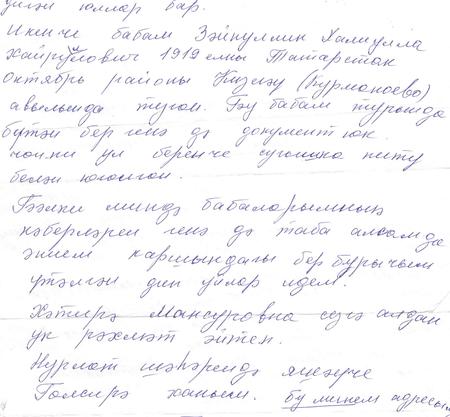 дигән юллар бар.
Икенче бабам Зәйнуллин Халиулла
Хайруллович 1919 елны Татарстан
октябрь районы Кизләү (Курманаево)
авылында туган. Бу бабам турында
бүтән бер генә дә документ юк.
чөнки ул беренче сугышка китү
белән югалган.
Бәлки миндә бабаларымның
кәберләрен генә дә таба алсам да
әнием каршындагы бер бурычым
үтәлгән дип уйлар идем.
Хәтирә Мансуровна сезгә алдан
ук рәхмәт әйтәм.
Нурлат шәһәрендә яшәүче
Гөлсирә ханым. бу минем адресым